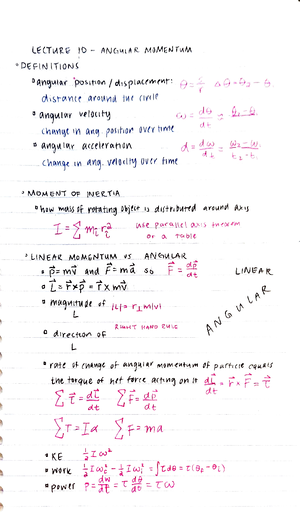 LECTURE 10 - ANGULAR MOMENTUM
DEFINITIONS
angular position / displacement: θ = s/r Δθ = θ₂ - θ₁
distance around the circle
angular velocity ω = dθ/dt = θ₂ - θ₁
change in ang. position over time
angular acceleration α = dω/dt = ω₂ - ω₁ / t₂ - t₁
change in ang. velocity over time
MOMENT OF INERTIA
how mass of rotating object is distributed around axis
I = Σ mᵢ rᵢ² use parallel axis theorem
or a table
LINEAR MOMENTUM vs ANGULAR
p⃗ = mv⃗ and F⃗ = ma⃗ so F⃗ = dp⃗/dt LINEAR
L⃗ = r⃗ × p⃗ = r⃗ × mv⃗
magnitude of L |L| = r⊥ m|v| ANGULAR
direction of L RIGHT HAND RULE
rate of change of angular momentum of particle equals
the torque of net force acting on it dL⃗/dt = r⃗ × F⃗ = τ⃗
Σ τ⃗ = dL⃗/dt Σ F⃗ = dp⃗/dt
Στ = Iα ΣF = ma
KE ½ I ω²
work ½ I ω₂² - ½ I ω₁² = ∫ τ dθ = τ(θ₂ - θ₁)
power P = dw/dt = τ dθ/dt = τω